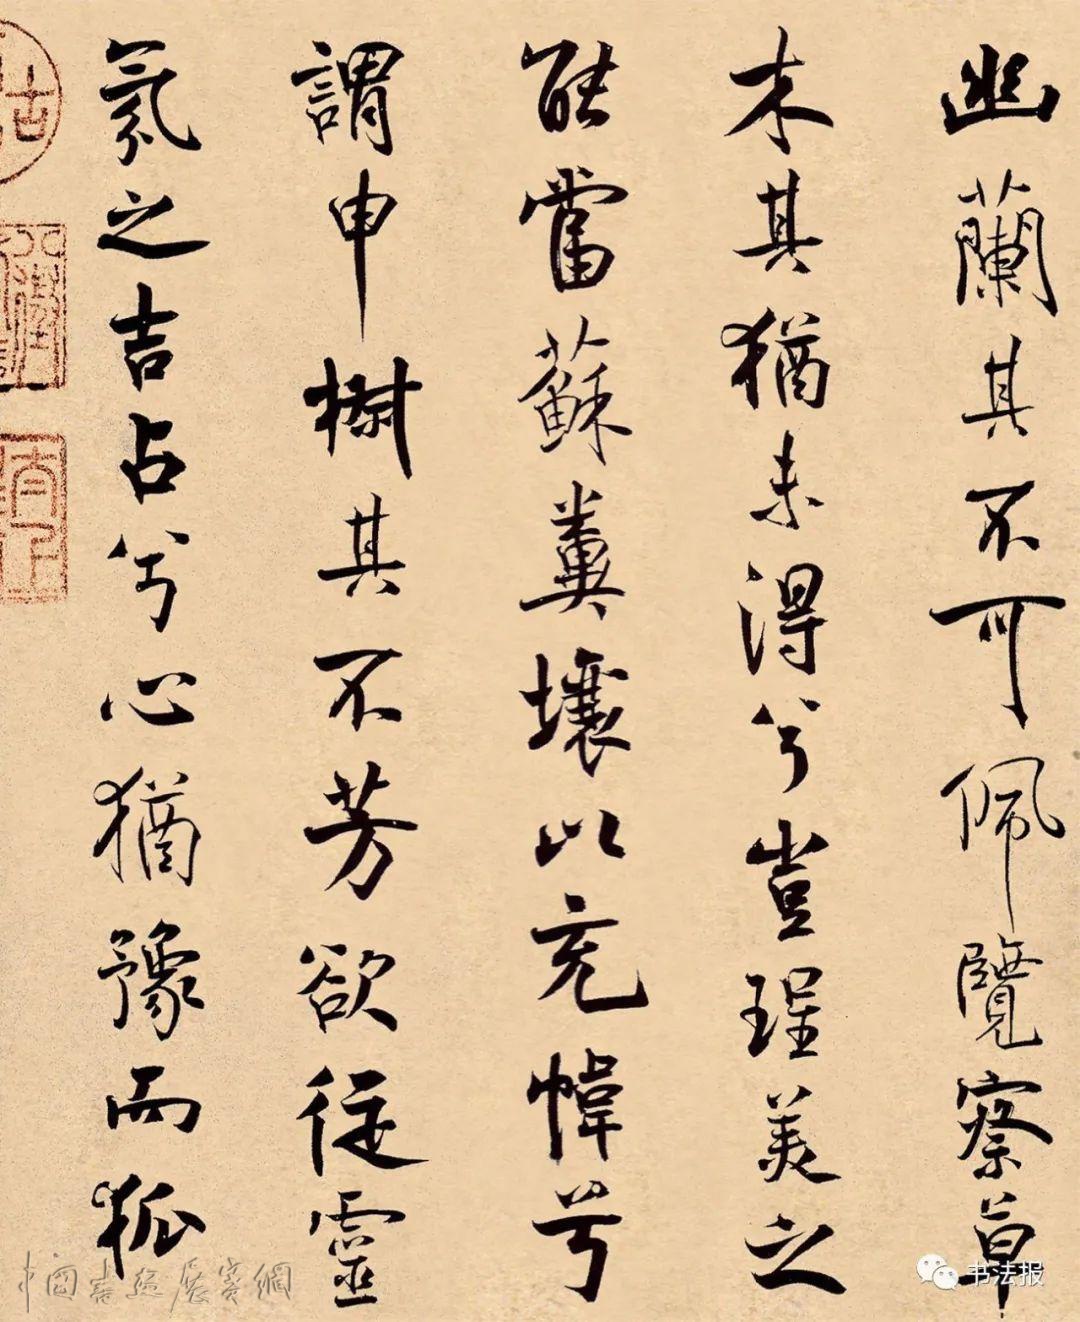 幽蘭其不可佩覽察草
木其猶未得兮豈珵美之
能當蘇糞壤以充幃兮
謂申椒其不芳欲從靈
氛之吉占兮心猶豫而狐
中國書画展賽網
书法报